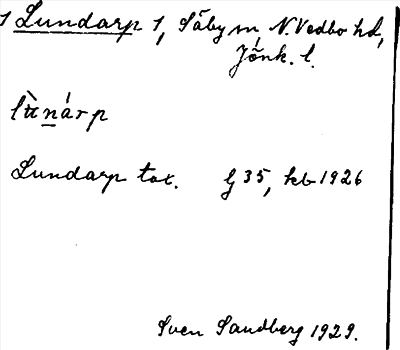 1 Lundarp 1, Säby sn, N. Vedbo hd,
Jönk. l.
lùnárp
Lundarp tax. Lj 35, kb 1926
Sven Sandberg 1929.